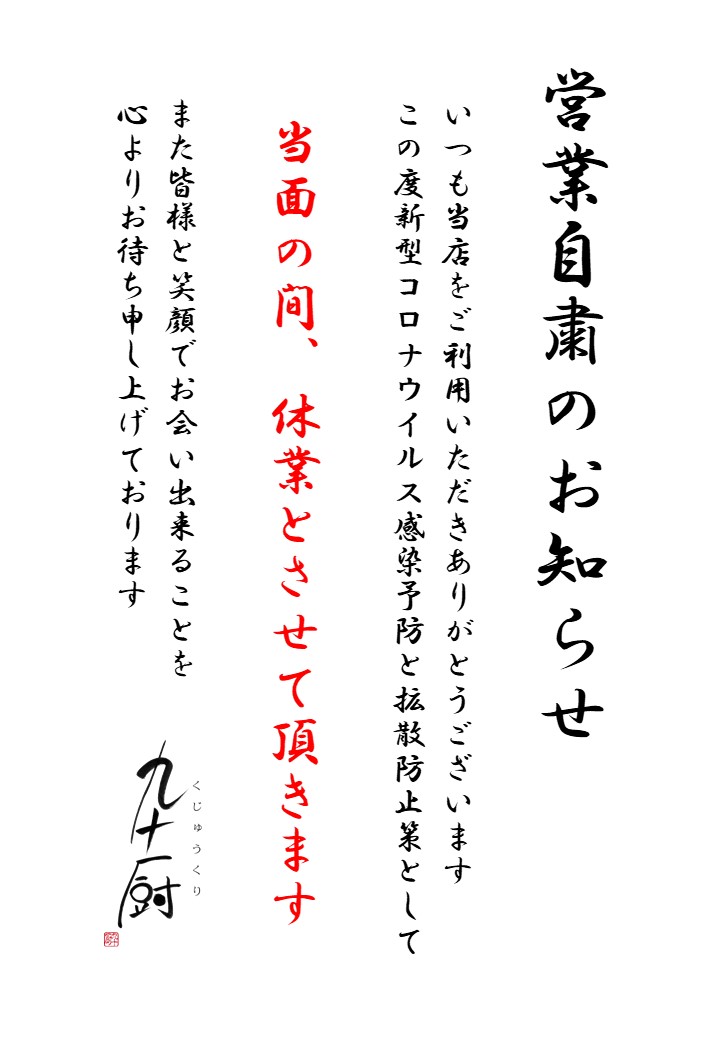 営業自粛のお知らせ
いつも当店をご利用いただきありがとうございます
この度新型コロナウイルス感染予防と拡散防止策として
当面の間、休業とさせて頂きます
また皆様と笑顔でお会い出来ることを
心よりお待ち申し上げております
くじゅうくり
九十厨